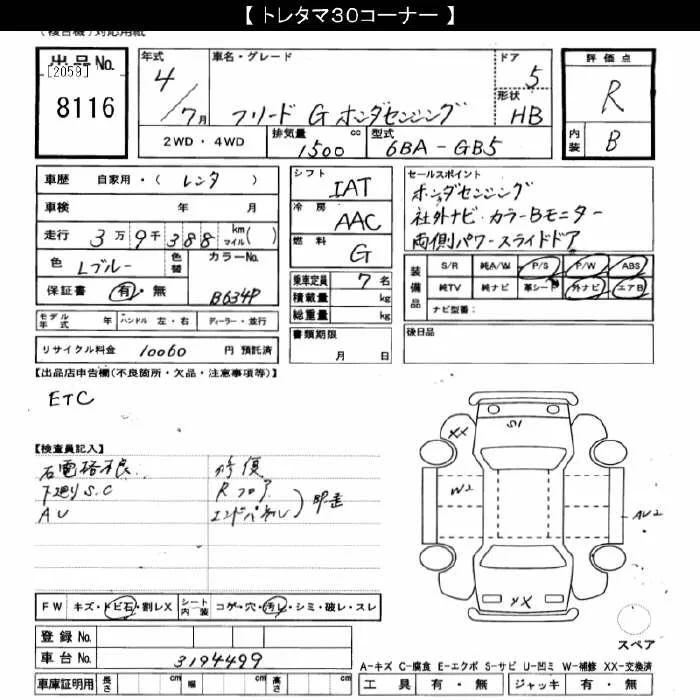 【 トレタマ30コーナー 】
(複合機)対応用紙
出品No.
[2059]
8116
年式
4/7月
車名・グレード
フリード G ホンダセンシング
ドア
5
形状
HB
評価点
R
内装
B
2WD・4WD
排気量 1500 cc
型式 6BA-GB5
車歴 自家用・( レンタ )
車検 年 月
走行 3万9千388 km マイル( )
色 Lブルー
色替
カラーNo.
B634P
保証書 有・無
モデル年式 年 ハンドル 左・右 ディーラー・並行
リサイクル料金 10060 円 預託済
シフト IAT
冷房 AAC
燃料 G
乗車定員 7 名
積載量 kg
総重量 kg
書類期限
月 日
セールスポイント
ホンダセンシング
社外ナビ・カラーBモニター
両側パワースライドドア
装備品
S/R 純A/W P/S P/W ABS
純TV 純ナビ 革シート 外ナビ エアB
ナビ型番:
後日品
【出品店申告欄(不良箇所・欠品・注意事項等)】
ETC
【検査員記入】
下廻りS.C
AU
修復
Rフロア
エンドパネル
XX
S1
W2
AU2
XX
FW キズ・トビ石・割レX
シート内装 コゲ・穴・汚レ・シミ・破レ・スレ
登録No.
車台No. 3194499
車庫証明用 長さ cm 幅 cm 高さ cm
スペア
A-キズ C-腐食 E-エクボ S-サビ U-凹ミ W-補修 XX-交換済
工具 有・無 ジャッキ 有・無